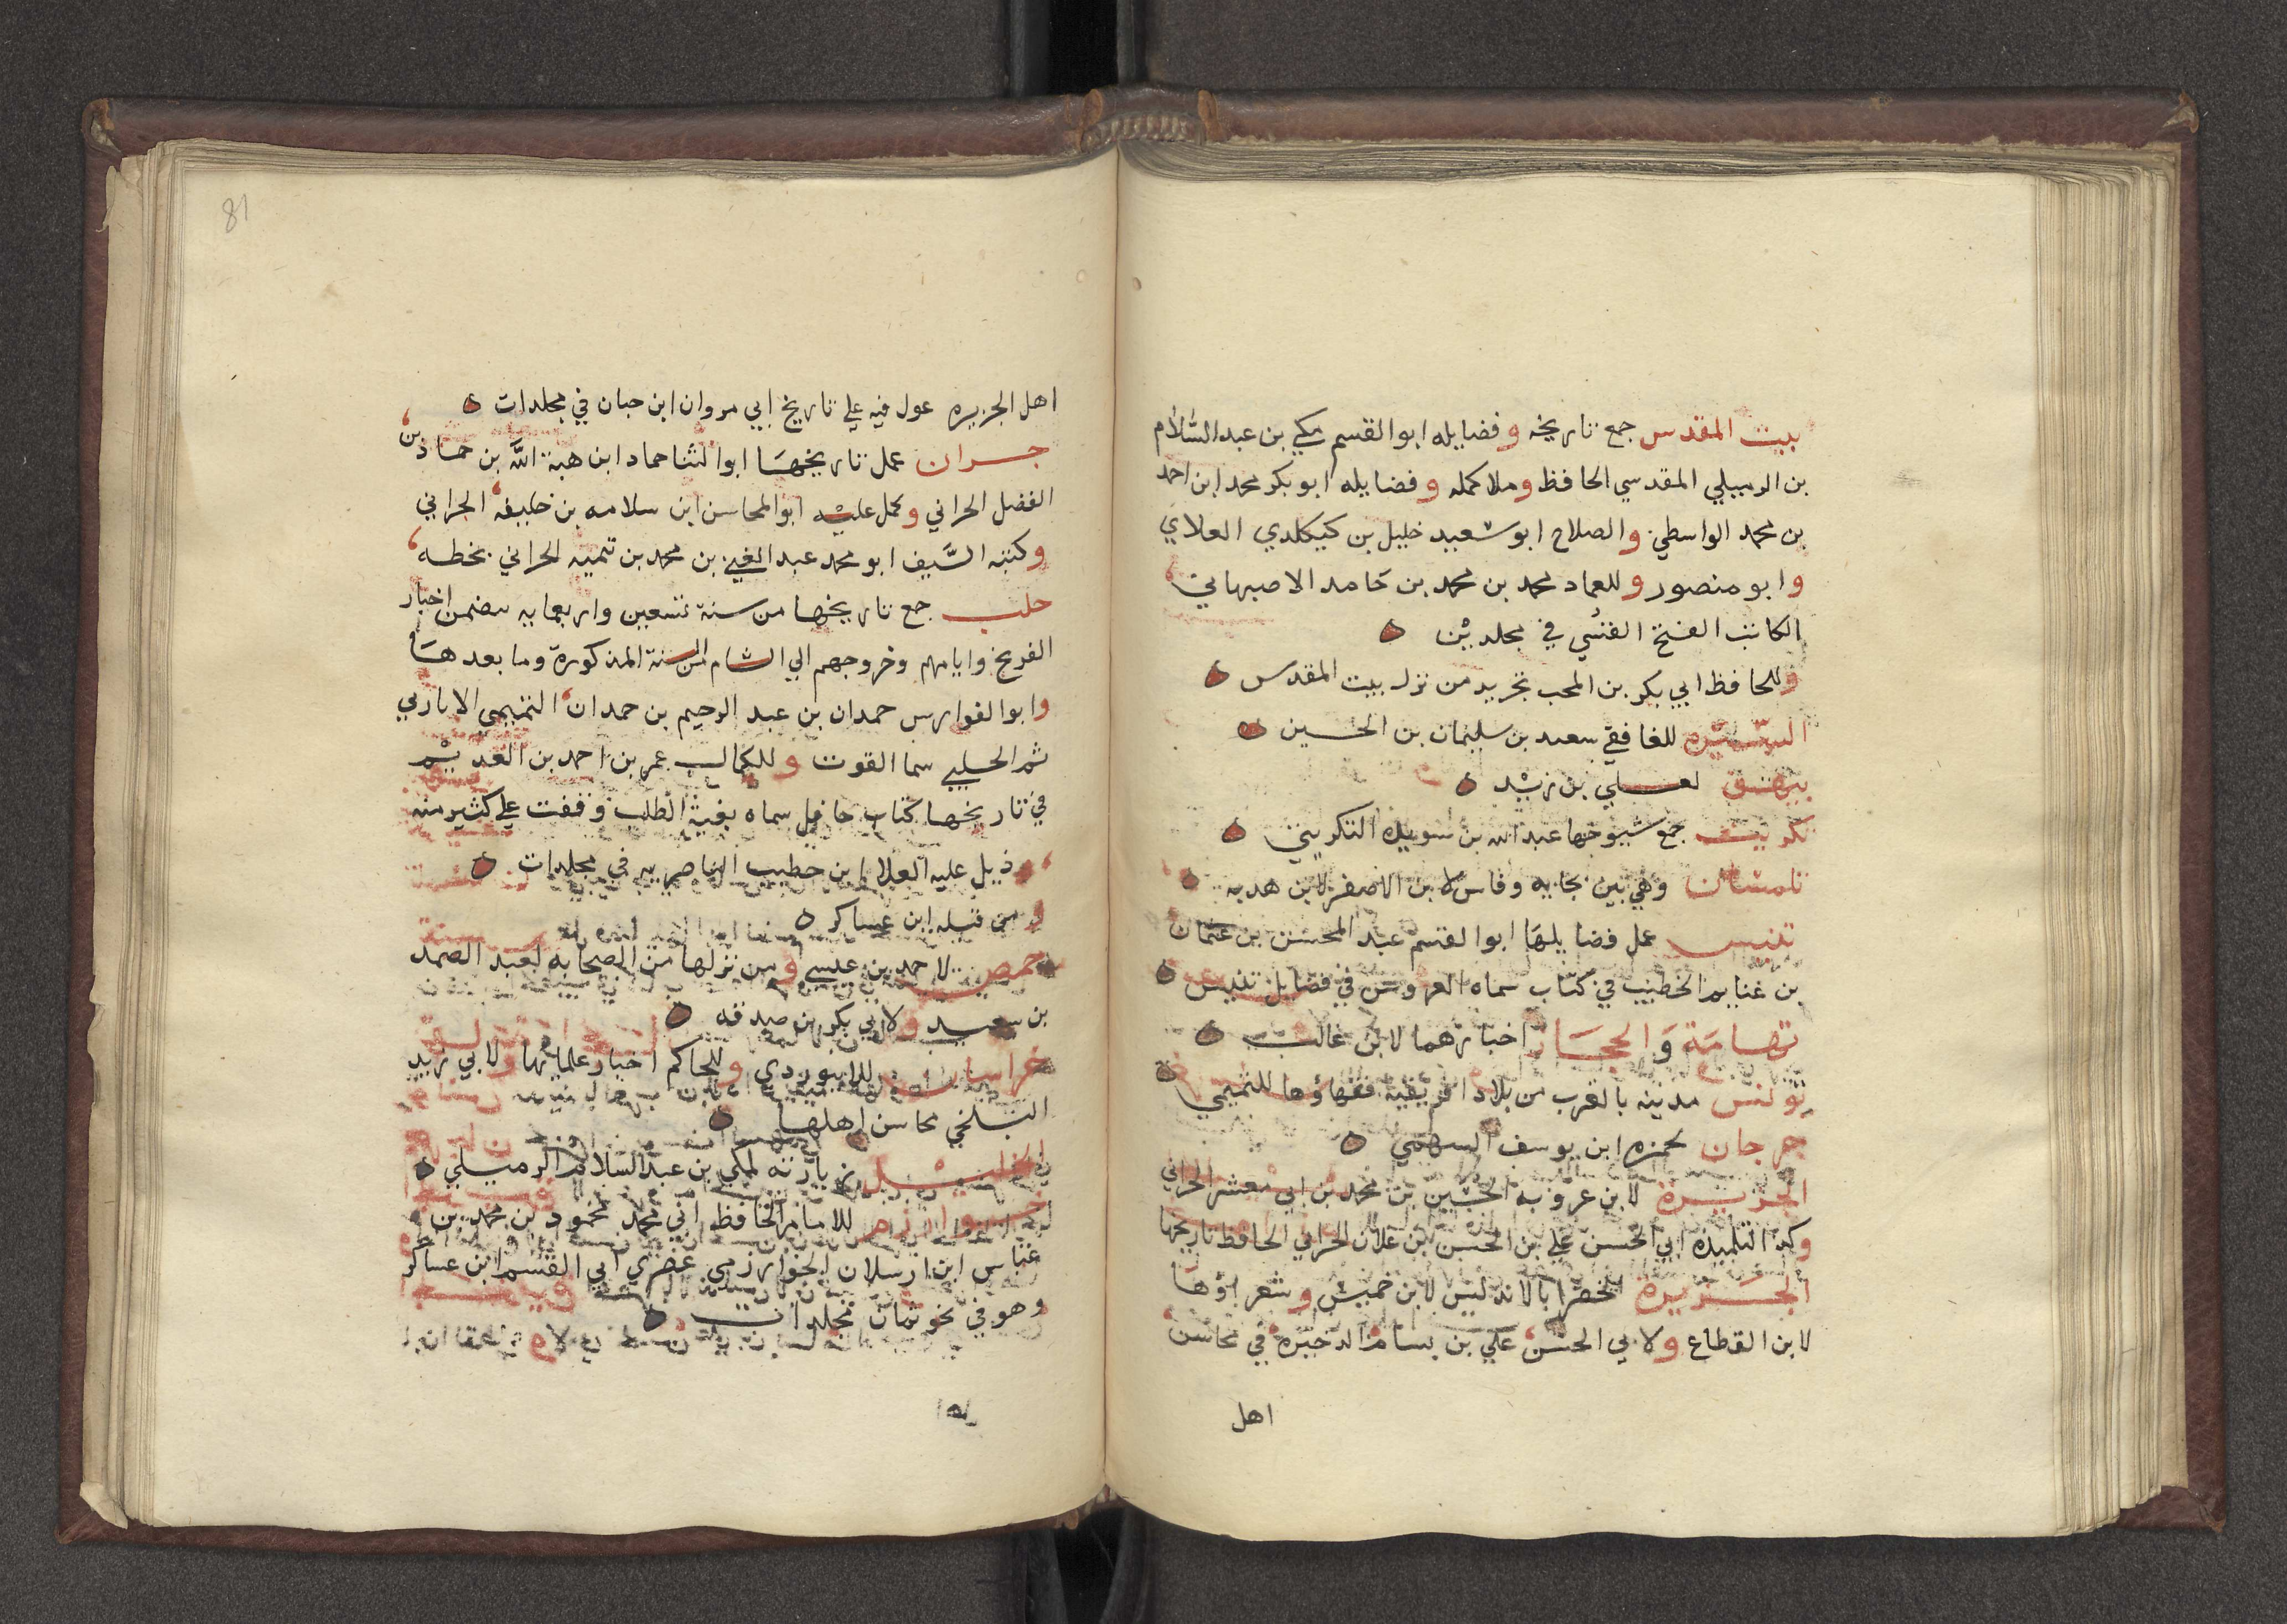 بيت المقدس جمع تاريخه وفضايله ابو القسم مكي بن عبد السلام
بن الرميلي المقدسي الحافظ وما كمله وفضايله ابو بكر محمد ابن احمد
بن محمد الواسطي والصلاح ابو سعيد خليل بن كيكلدي العلاي
وابو منصور وللعماد محمد بن محمد بن حامد الاصبهاني
الكاتب الفتح القسي في مجلدين
وللحافظ ابي بكر بن المحب تجريد من نزل بيت المقدس
للغافقي سعد بن سليمان بن الحسين
بيهق لعلي بن زيد
تكريت جمع شيوخها عبد الله بن سويدة التكريتي
تلمسان وهي بين بجايه وفاس لابن الاصفر لابن هديه
تنيس عمل فضايلها ابو القسم عبد المحسن بن عثمان
بن غنايم الخطيب في كتاب سماه العروس في فضايل تنيس
تهامة والحجاز اخبارهما لابن غالب
تونس مدينه بالقرب من بلاد افريقية فقهاؤها للتميمي
جرجان لحمزه ابن يوسف السهمي
الجزيرة لابن عروبه الحسين بن محمد بن ابي معشر الحراني
وكذا لتلميذه ابي الحسن علي بن الحسن بن علان الحراني الحافظ تاريخها
الجزيرة الخضرا بالاندلس لابن خميس وشعراؤها
لابن القطاع ولابي الحسن علي بن بسام الذخيرة في محاسن
اهل
81
اهل الجزيره عول فيه على تاريخ ابي مروان ابن حبان في مجلدات
حران عمل تاريخها ابو الثنا حماد ابن هبة الله بن حماد بن
الفضل الحراني وكمل عليه ابو المحاسن ابن سلامه بن خليفه الحراني
وكتبه السيف ابو محمد عبد الغني بن محمد بن تيميه الحراني بخطه
حلب جمع تاريخها من سنة تسعين واربعمايه تضمن اخبار
الفرنج وايامهم وخروجهم الي الشام السنة المذكورة وما بعدها
وابو الفوارس حمدان بن عبد الرحيم بن حمدان التميمي الاثاربي
ثم الحلبي سما القوت وللكمال عمر بن احمد بن العديم
في تاريخها كتاب حافل سماه بغية الطلب وقفت على كثير منه
وذيل عليه العلا ابن خطيب الناصريه في مجلدات
ومن قبله ابن عساكر
حمص لاحمد بن عيسى ومن نزلها من الصحابه لعبد الصمد
بن سعيد ولابي بكر بن صدقه
خراسان للابيوردي وللحاكم اخبار علمايها ولابي زيد
البلخي محاسن اهلها
الخليل زيارته لمكي بن عبد السلام الرميلي
خوارزم للامام الحافظ ابي محمد محمود بن محمد بن
عباس ابن ارسلان الخوارزمي عصري ابي القسم ابن عساكر
وهو في نحو ثمان مجلدات